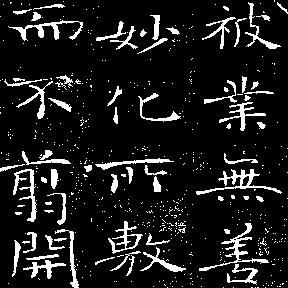 被業無善
妙化所敷
而不翦開